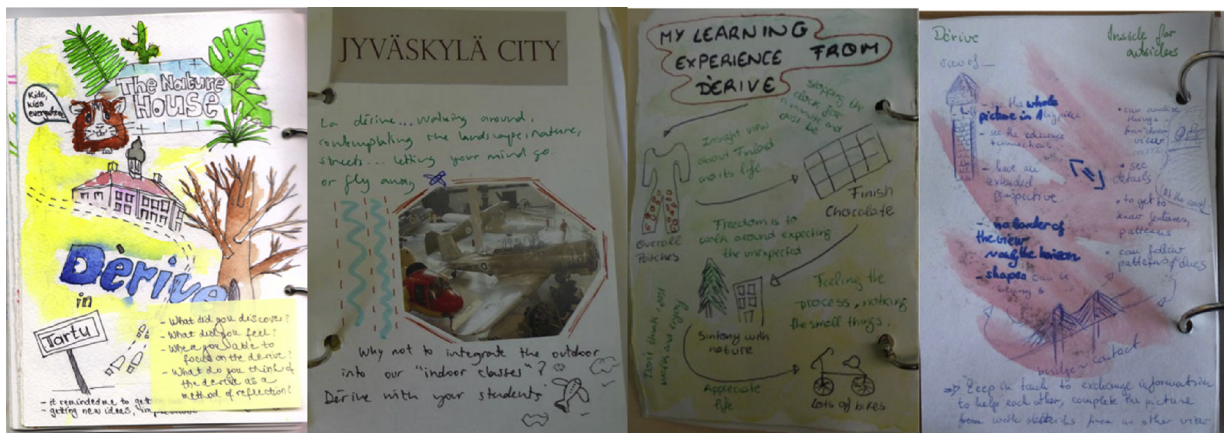 Kids,
kiss
everywhere
The Nature
House
Derive
in
Tartu
- What did you discover?
- What did you feel?
- Where you able to
focus on the derive?
- What do you think of
the derive as a
method of reflection?
- it reminded me to get
- getting new ideas,
JYVÄSKYLÄ CITY
La dérive... walking around,
contemplating the landscapes, nature,
streets... letting your mind go.
or fly away
Why not to integrate the outdoor
into our "indoor classes"?
Dérive with your students
MY LEARNING
EXPERIENCE FROM
DÈRIVE
Stopping the
clock for
a moment and
just be
Insight view
about Finland
and its life
Finish
Chocolate
Overall
Patches
Freedom is to
walk around expecting
the unexpected
Feeling the
process, noticing
the small things.
Sintony with
nature
Don't think, just
walk and enjoy
Appreciate
life
Lots of bikes
Dérive
Inside for
outsiders
- see the whole
picture in 1
- see the
connections
- have an
extended
perspective
- no border of
the view
only the horizon
- shapes
can
things
view
• see
details
• to get to
know
patterns
• can follow
pattern of
bridge - contact
=> Keep in touch to exchange information
to help each other, complete the picture
from with from an other view